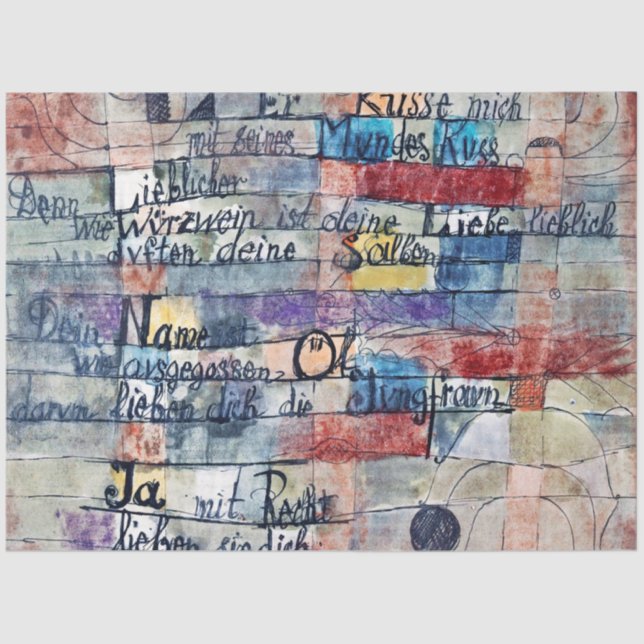 Er Küsse mich
mit seines Mundes Kuss
Denn Lieblicher
wie Würzwein ist deine Liebe lieblich
duften deine Salben
Dein Name ist
wie ausgegossen Öl
darum lieben dich die Jungfraun
Ja mit Recht
lieben sie dich.